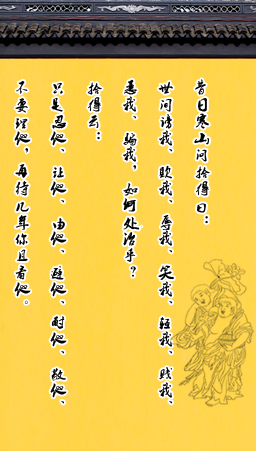 昔日寒山问拾得曰：
世间谤我、欺我、辱我、笑我、轻我、贱我、
恶我、骗我，如何处治乎？
拾得云：
只是忍他、让他、由他、避他、耐他、敬他、
不要理他，再待几年你且看他。